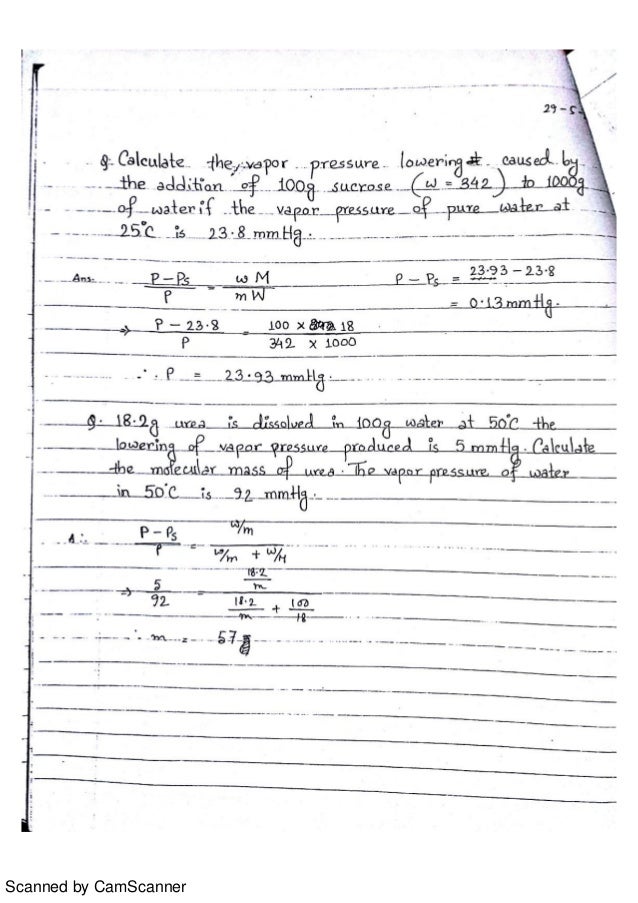 29-5-
Q. Calculate the vapor pressure lowering caused by
the addition of 100g sucrose (W = 342) to 1000g
of water if the vapor pressure of pure water at
25°C is 23.8 mmHg.
Ans- P-Ps / P = wM / mW
P - Ps = 23.93 - 23.8
= 0.13 mmHg.
⇒ P - 23.8 / P = 100 × 18 / 342 × 1000
∴ P = 23.93 mmHg.
Q. 18.2g urea is dissolved in 100g water at 50°C the
lowering of vapor pressure produced is 5 mmHg. Calculate
the molecular mass of urea. The vapor pressure of water
in 50°C is 92 mmHg.
A:- P-Ps / P = w/m / w/m + W/M
⇒ 5 / 92 = 18.2/m / 18.2/m + 100/18
∴ m = 57
Scanned by CamScanner